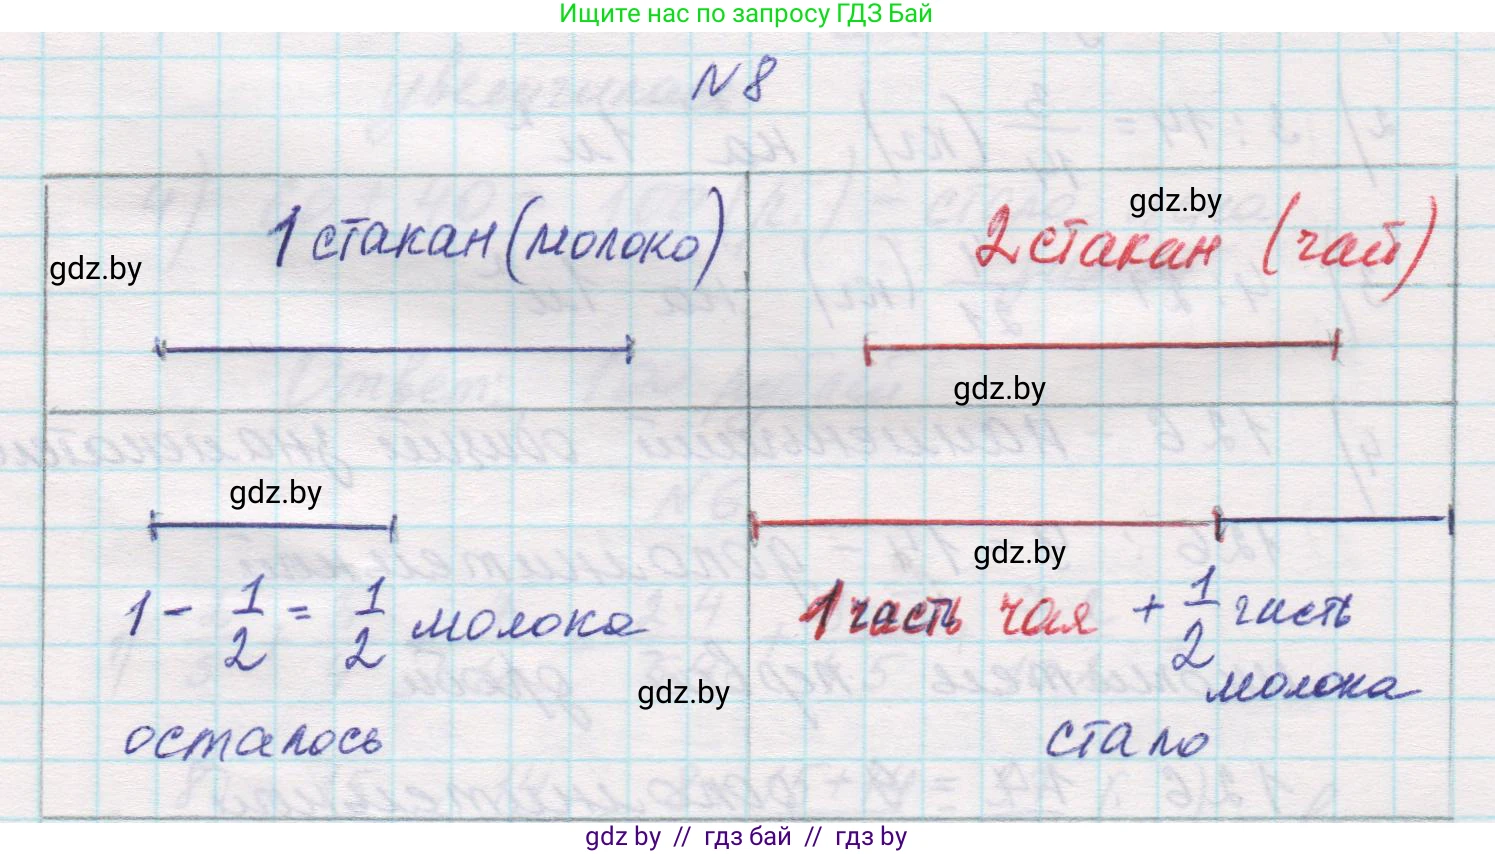 Ищите нас по запросу ГДЗ Бай
N 8
1 стакан (молоко)
gdz.by
2 стакан (чай)
gdz.by
gdz.by
gdz.by
1 - 1/2 = 1/2 молока
осталось
gdz.by
1 часть чая + 1/2 часть
молока
стало
gdz.by
gdz by // гдз бай // гдз by